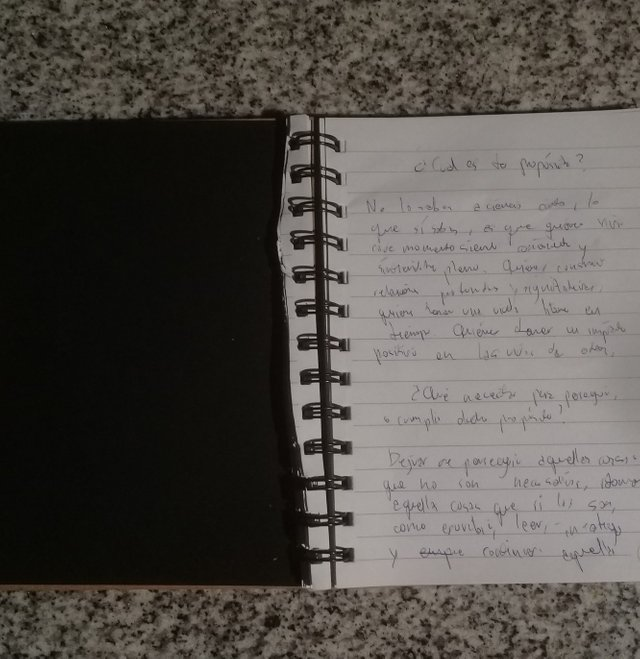 ¿Cuál es tu propósito?
No lo sabes a ciencia cierta, lo
que sí sabes, es que quieres vivir
cada momento siendo consciente y
plena. Quieres construir
relaciones profundas y significativas,
quieres tener una vida libre en
tiempo. Quieres tener un impacto
positivo en las vidas de otros.
¿Qué necesitas para perseguir,
o cumplir dicho propósito?
Dejar de perseguir aquellas cosas
que no son necesarias,
aquellas cosas que sí lo son,
como escribir, leer,
y aquella